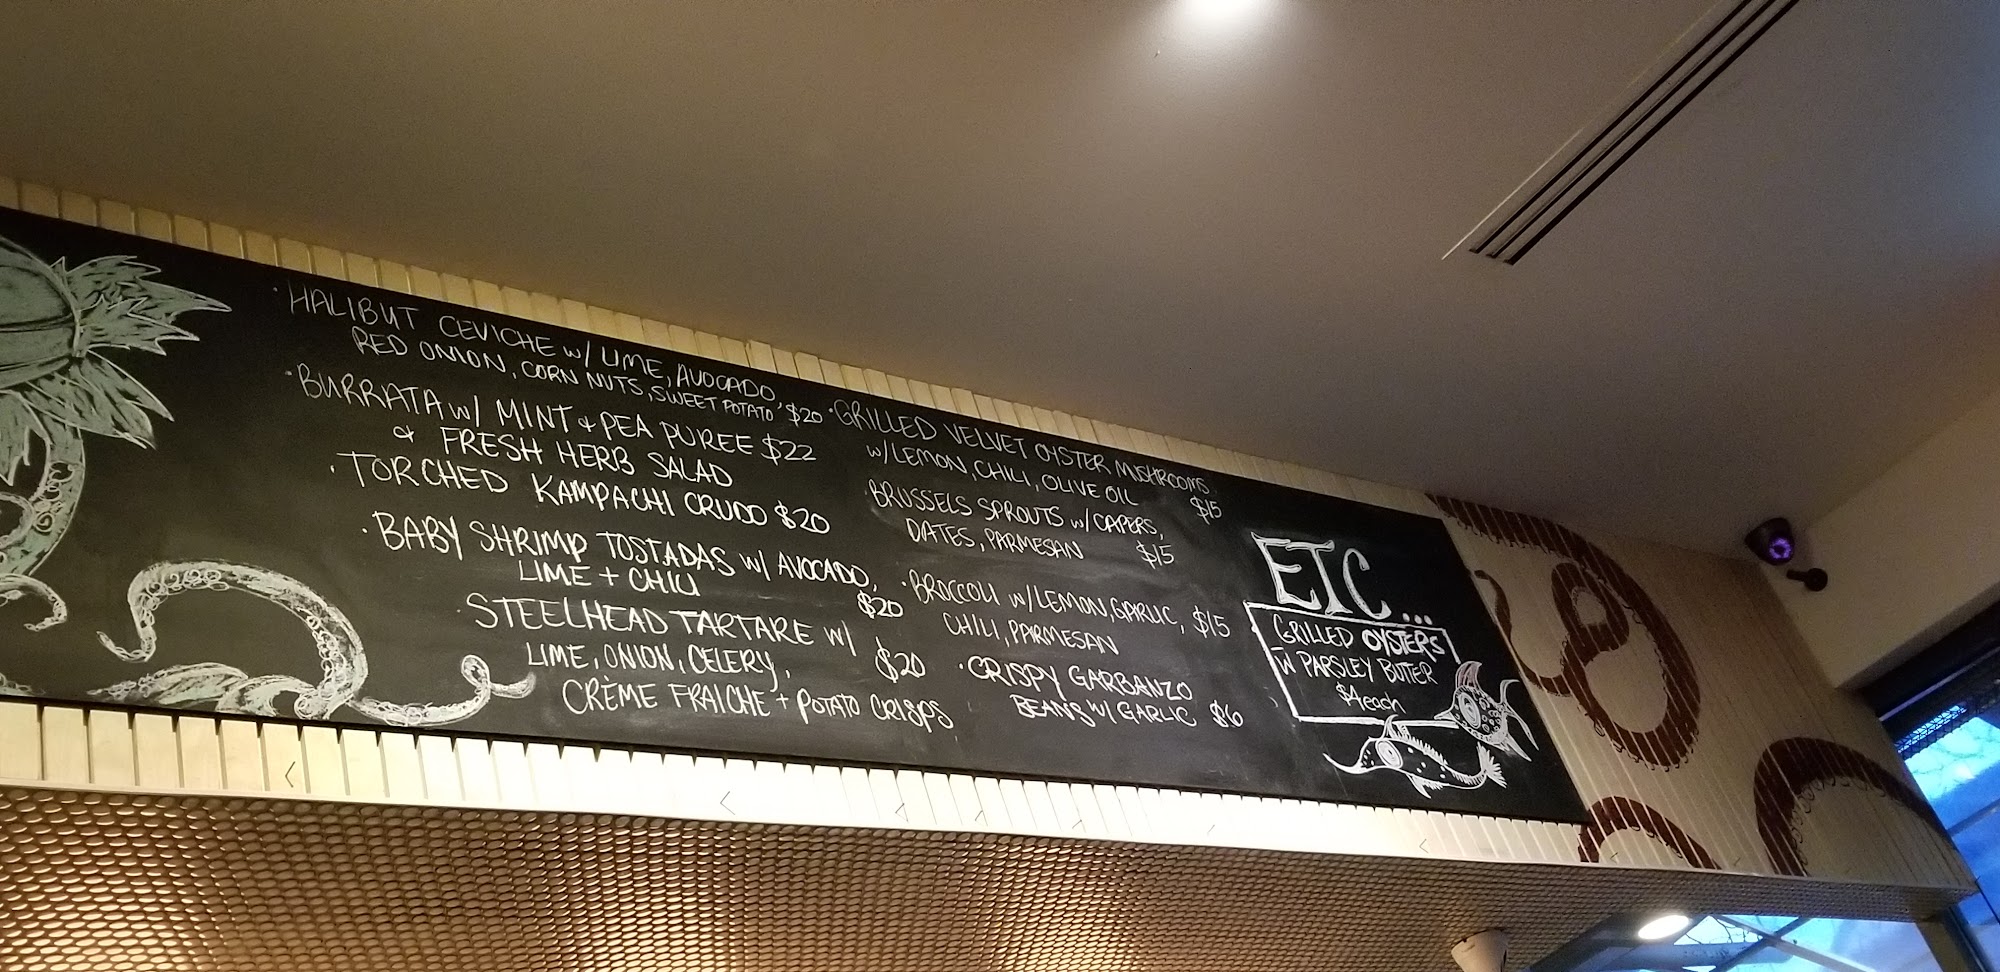 · HALIBUT CEVICHE w/ LIME, AVOCADO,
RED ONION, CORN NUTS, SWEET POTATO $20
· BURRATA w/ MINT & PEA PUREE $22
& FRESH HERB SALAD
· TORCHED KAMPACHI CRUDO $20
· BABY SHRIMP TOSTADAS w/ AVOCADO,
LIME + CHILI $20
· STEELHEAD TARTARE w/
LIME, ONION, CELERY, $20
CRÈME FRAICHE + POTATO CRISPS
· GRILLED VELVET OYSTER MUSHROOMS
w/ LEMON, CHILI, OLIVE OIL $15
· BRUSSELS SPROUTS w/ CAPERS,
DATES, PARMESAN $15
· BROCCOLI w/ LEMON, GARLIC, $15
CHILI, PARMESAN
· CRISPY GARBANZO
BEANS w/ GARLIC $6
ETC...
GRILLED OYSTERS
W PARSLEY BUTTER
$4 each